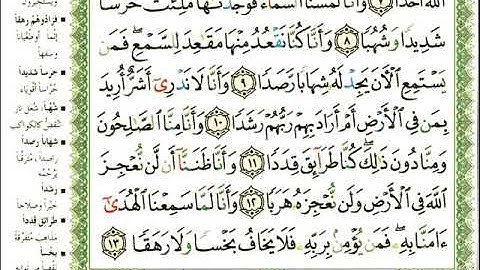 اللَّهُ أَحَدًا ٧ وَأَنَّا لَمَسْنَا السَّمَاءَ فَوَجَدْنَاهَا مُلِئَتْ حَرَسًا
شَدِيدًا وَشُهُبًا ٨ وَأَنَّا كُنَّا نَقْعُدُ مِنْهَا مَقَاعِدَ لِلسَّمْعِ فَمَن
يَسْتَمِعِ الْآنَ يَجِدْ لَهُ شِهَابًا رَّصَدًا ٩ وَأَنَّا لَا نَدْرِي أَشَرٌّ أُرِيدَ
بِمَن فِي الْأَرْضِ أَمْ أَرَادَ بِهِمْ رَبُّهُمْ رَشَدًا ١٠ وَأَنَّا مِنَّا الصَّالِحُونَ
وَمِنَّا دُونَ ذَٰلِكَ كُنَّا طَرَائِقَ قِدَدًا ١١ وَأَنَّا ظَنَنَّا أَن لَّن نُّعْجِزَ
اللَّهَ فِي الْأَرْضِ وَلَن نُّعْجِزَهُ هَرَبًا ١٢ وَأَنَّا لَمَّا سَمِعْنَا الْهُدَىٰ
ءَامَنَّا بِهِ فَمَن يُؤْمِن بِرَبِّهِ فَلَا يَخَافُ بَخْسًا وَلَا رَهَقًا ١٣
فزادوهم رهقا
إثما
حرسا شديدا
حرسا أقوياء
شهبا
شعل نار
تنقض كالكواكب
شهابا رصدا
راصدا، مترقبا
يرجمه
رشدا
خيرا وصلاحا
طرائق قددا
مذاهب متفرقة
بخسا